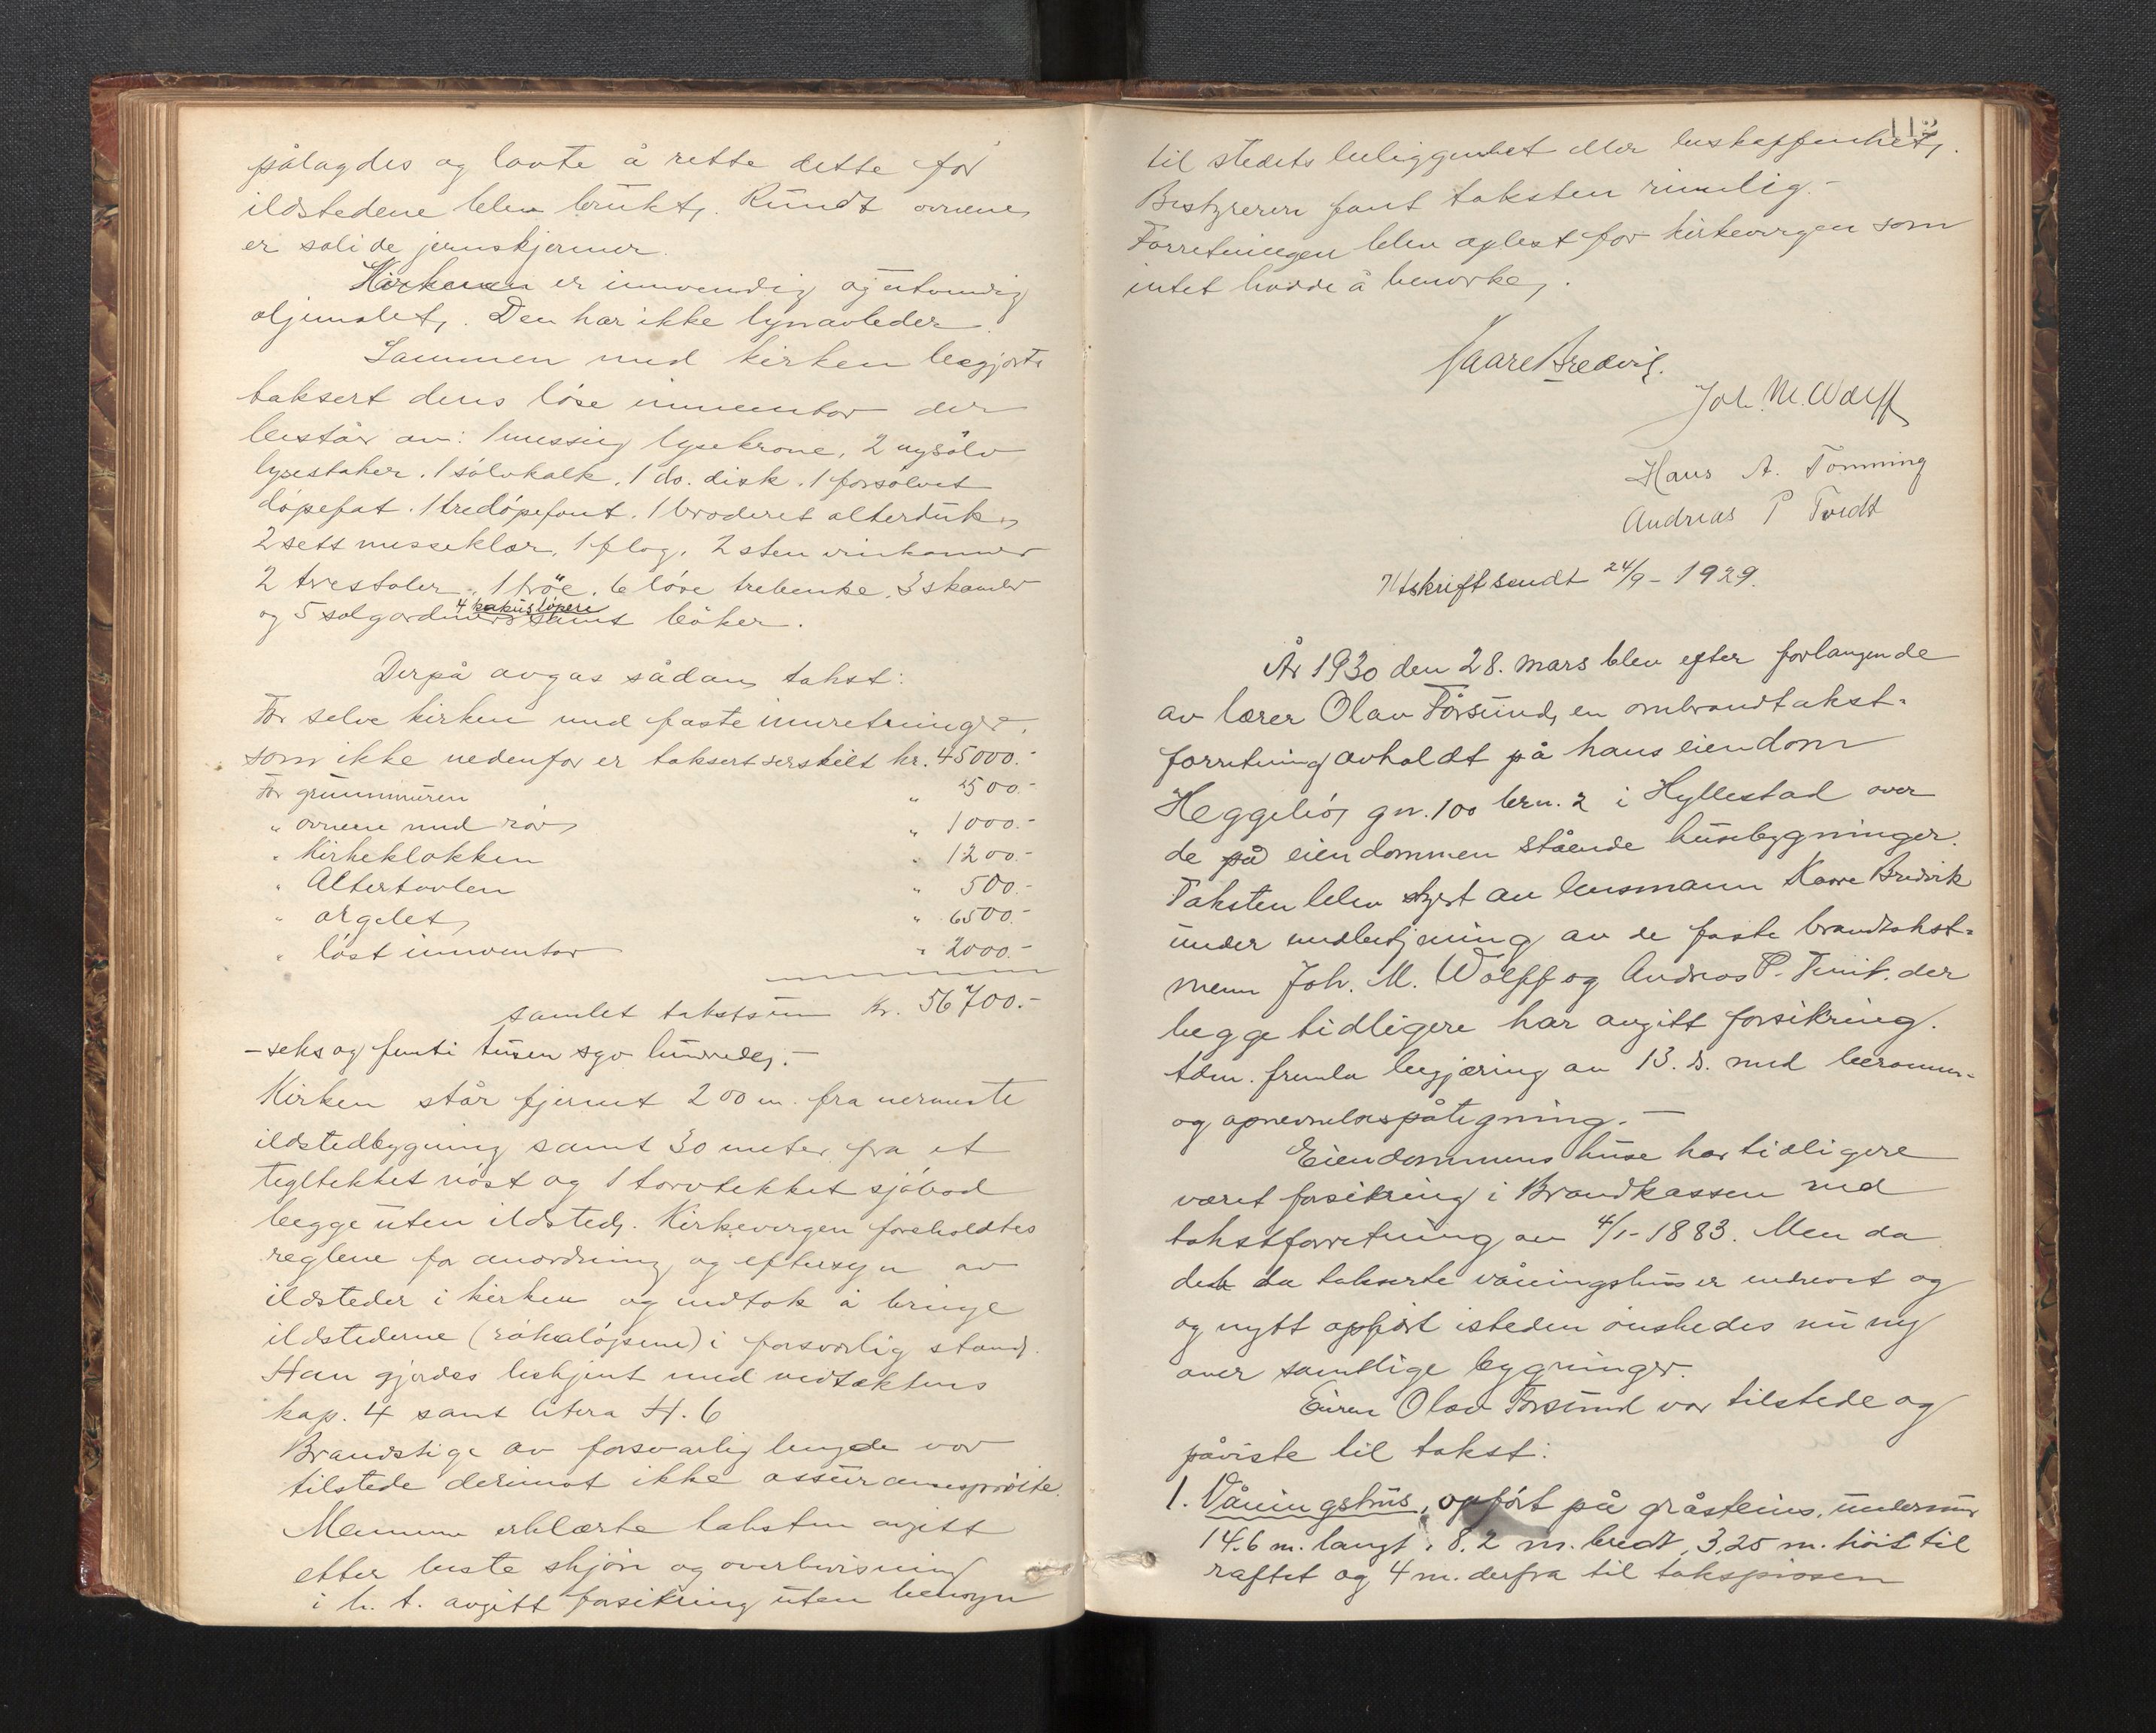 pålagdes og lovte å rette dette før
ildstedene blev brukt. Rundt ovnene
er solide jernskjermer.
Kirken er innvendig og utvendig
oljemalet. Den har ikke lynavleder.
Sammen med kirken begjærtes
taksert dens løse inventar der
består av: 1 messing lysekrone, 2 nysølv
lysestaker. 1 sølvkalk. 1 do. disk. 1 forsølvet
døpefat. 1 tredøpefont. 1 broderet alterduk,
2 sett messeklær, 1 flag. 2 sten vinkanner
2 trestoler. 6 løse trebenke. 3 skamler
4 kokusløpere
og 5 solgardiner samt bøker.
Derpå avgas sådan takst:
For selve kirken med faste innretninger,
som ikke nedenfor er taksert særskilt kr. 45000.-
For grunnmuren " 500.-
" ovnene med rør " 1000.-
" Kirkeklokken " 1200.-
" Altertavlen " 500.-
" orgelet " 6500.-
" løst inventar " 2000.-
samlet takstsum kr. 56700.-
- seks og femti tusen syv hundrede.-
Kirken står fjernet 200 m. fra nermeste
ildstedbygning samt 30 meter fra et
tegltekket nøst og 1 torvtekket sjøbod
begge uten ildsted. Kirkevergen foreholdtes
reglene for anordning og eftersyn av
ildsteder i kirken og vedtok å bringe
ildstederne (røkaløpene) i forsvarlig stand.
Han gjordes bekjent med vedtektens
kap. 4 samt litera H. 6
Brandstige av forsvarlig lengde var
tilstede derimot ikke assuransesprøite.
Mennene erklærte taksten avgitt
etter beste skjøn og overbevisning
i h. t. avgitt forsikring uten hensyn
112
til stedets beliggenhet eller beskaffenhet.
Bestyreren fant taksten rimelig.-
Forretningen blev oplest for kirkevergen som
intet hadde å bemerke.
Kaare Bredvik.
Joh. M. Wolff
Hans A. Tønning
Andreas P Tvedt
Utskrift sendt 24/9 - 1929.
År 1930 den 28. mars blev efter forlangende
av lærer Olav Førsund, en ombrandtakst-
forretning avholdt på hans eiendom
Heggeliø, gn. 100 brn. 2 i Hyllestad over
de på eiendommen stående husebygninger.
Taksten blev styrt av lensmann Kaare Bredvik
under medbetjening av de faste brandtakst-
menn Joh. M. Wolff og Andreas P. Tveit. der
begge tidligere har avgitt forsikring.
tdm. fremla begjæring av 13. ds. med berammelses-
og opnevnelsespåtegning.-
Eiendommens huse har tidligere
været forsikring i Brandkassen ved
takstforretning av 4/1- 1883. Men da
det da takserte våningshus er nedrevet og
og nytt opført isteden ønskedes nu ny
over samtlige bygninger.
Eieren Olav Førsund var tilstede og
påviste til takst:
1. Våningshus, opført på gråsteins. undermur
14.6 m. langt, 8.2 m. bredt, 3,25 m. høit til
raftet og 4 m. derfra til